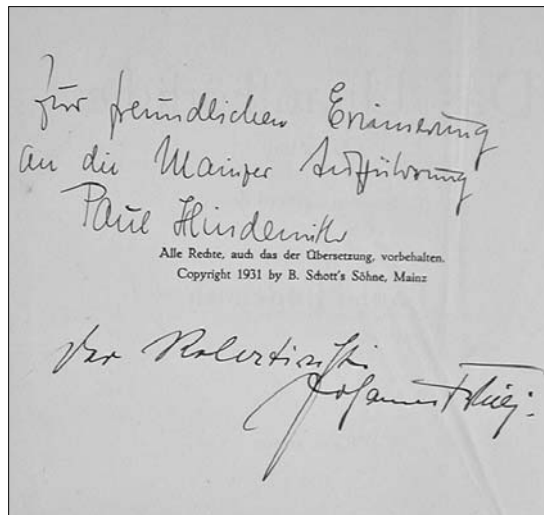 Zur freundlichen Erinnerung
an die Mainzer Aufführung
Paul Hindemith
Alle Rechte, auch das der Übersetzung, vorbehalten.
Copyright 1931 by B. Schott's Söhne, Mainz
Der
Johannes